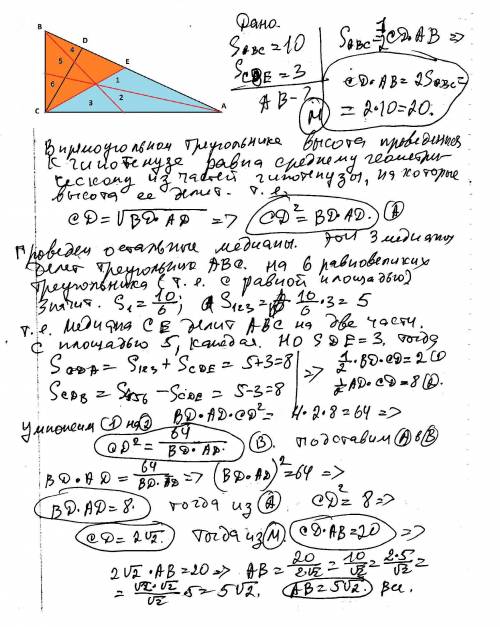 B
D
4
E
5
1
6
3
2
C
A
Дано.
S_ABC = 10
S_CDE = 3
AB - ?
S_ABC = 1/2 CD·AB =>
CD·AB = 2S_ABC =
= 2·10 = 20.
M
В прямоугольном треугольнике высота проведенная
к гипотенузе равна среднему геометри-
ческому из частей гипотенузы, на которые
высота ее делит. т.е.
CD = √BD·AD => CD² = BD·AD. A
Проведем остальные медианы. Эти 3 медианы
делят треугольник ABC на 6 равновеликих
треугольника (т.е. с равной площадью)
Значит. S₁ = 10/6; S₁₂₃ = 10/6 · 3 = 5
т.е. медиана CE делит ABC на две части.
с площадью 5, каждая. Но SDE = 3, тогда
S_CDA = S₁₂₃ + S_CDE = 5+3=8
S_CDB = S₄₅₆ - S_CDE = 5-3=8
=> 1/2·BD·CD = 2 (1)
1/2 AD·CD = 8 (2).
Умножим (1) на (2) BD·AD·CD² = 4·2·8 = 64 =>
CD² = 64/BD·AD. B. подставим A в B
BD·AD = 64/BD·AD => (BD·AD)² = 64 =>
BD·AD = 8. тогда из A. CD² = 8 =>
CD = 2√2. Тогда из M. CD·AB = 20 =>
2√2·AB = 20 => AB = 20/2√2 = 10/√2 = 2·5/√2 =
= √2·√2/√2 · 5 = 5√2. AB = 5√2. Все.